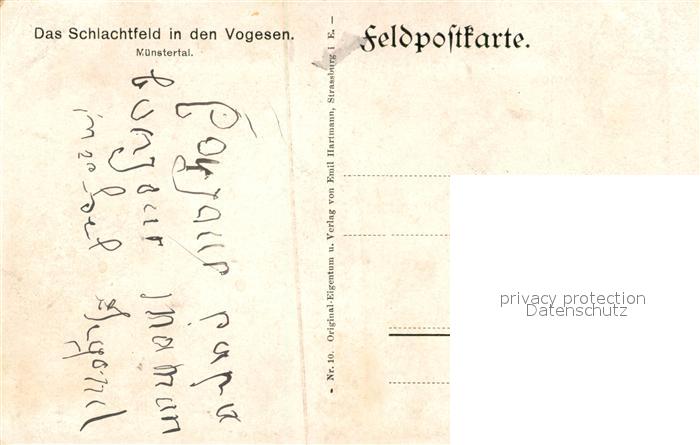 Das Schlachtfeld in den Vogesen.
Münstertal.
Feldpostkarte.
Bonjour papa
bonjour maman
- Nr. 10. Original-Eigentum u. Verlag von Emil Hartmann, Strassburg i E. -
privacy protection
Datenschutz